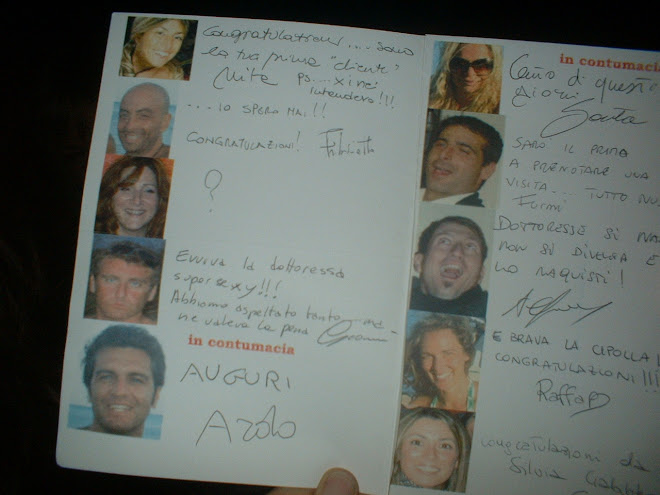 Congratulations.... sono
la tua prima "cliente"
Mita ps....
intendevo!!!
... IO SPERO MAI!!
CONGRATULAZIONI!
?
Evviva la dottoressa
supersexy!!!
Abbiamo aspettato tanto ma
ne valeva la pena
in contumacia
AUGURI
in contumacia
di questi
giorni
SARÒ IL PRIMO
A PRENOTARE UNA
VISITA... TUTTO
DOTTORESSE SI
NON SI DIVENTA E
LO NACQUISTI!
E BRAVA LA CIPOLLA!
CONGRATULAZIONI!!!
Raffa
congratulazioni da
Silvia